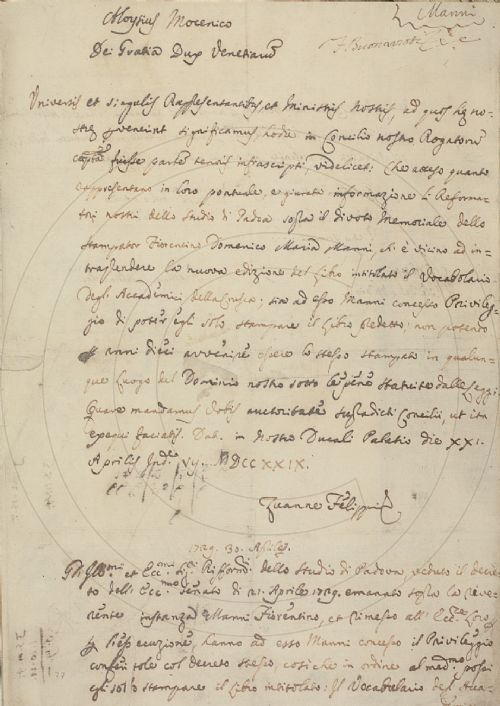 Manni
F. Buonarroti
Aloysius Mocenico
Dei Gratia Dux Venetiarum
Universis et singulis Rappresentantibus, et Ministris Nostris, ad quos hę no-
strę pervenerint significamus, hodie in Concilio nostro Rogatorum
captam fuisse partem tenoris infrascripti, videlicet: Che atteso quanto
rappresentano in loro pontuale, e giurata informazione li Reforma-
tori nostri dello Studio di Padoa sopra il divoto Memoriale dello
Stampator Fiorentino Domenico Maria Manni, ch'è vicino ad in-
traprendere la nuova edizione del Libro intitolato il Vocabolario
degli Accademici della Crusca; sia ad esso Manni concesso Privileg-
gio di poter egli solo stampare il Libro predetto; non potendo
p anni dieci avvenire essere lo stesso stampato in qualun-
que Luogo del Dominio nostro sotto le pene statuite dalle Leggi.
Quare mandamus Vobis auctoritate supradicti Concilii, ut ita
exequi faciatis. Dat. in Nostro Ducali Palatio die XXI.
Aprilis Ind.e VII. MDCCXXIX.
Zuanne Filippi
1729. 30. Aprile.
Gli Ill.mi et Ecc.mi Sig.ri Rifform.ri dello Studio di Padova, veduto il decre-
to dell' Ecc.mo Senato di 21. Aprile 1729. emanato sopra la reve-
rente instanza Manni Fiorentino, et rimesso all' Ecc.ze Loro
p l'essecuzione, hanno ad esso Manni concesso il Privileggio
col decreto stesso, cosiche in ordine al med.mo possi
egli solo stampare il Libro intitolato: Il Vocabolario degl' Acca-